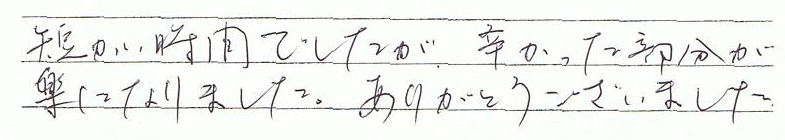 短かい時間でしたが、辛かった部分が
楽になりました。ありがとうございました